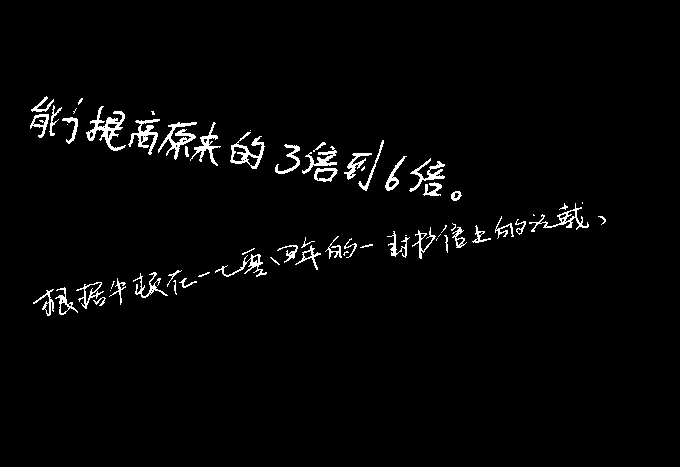 能够提高原来的3倍到6倍。
根据牛顿在一七零四年的一封书信上的记载、